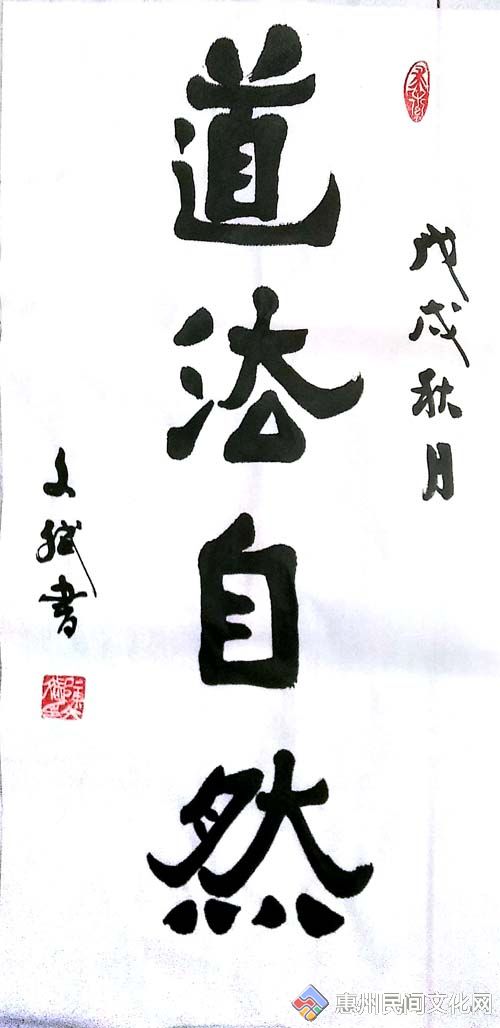 戊戌秋月
道法自然
文斌书
惠州民间文化网